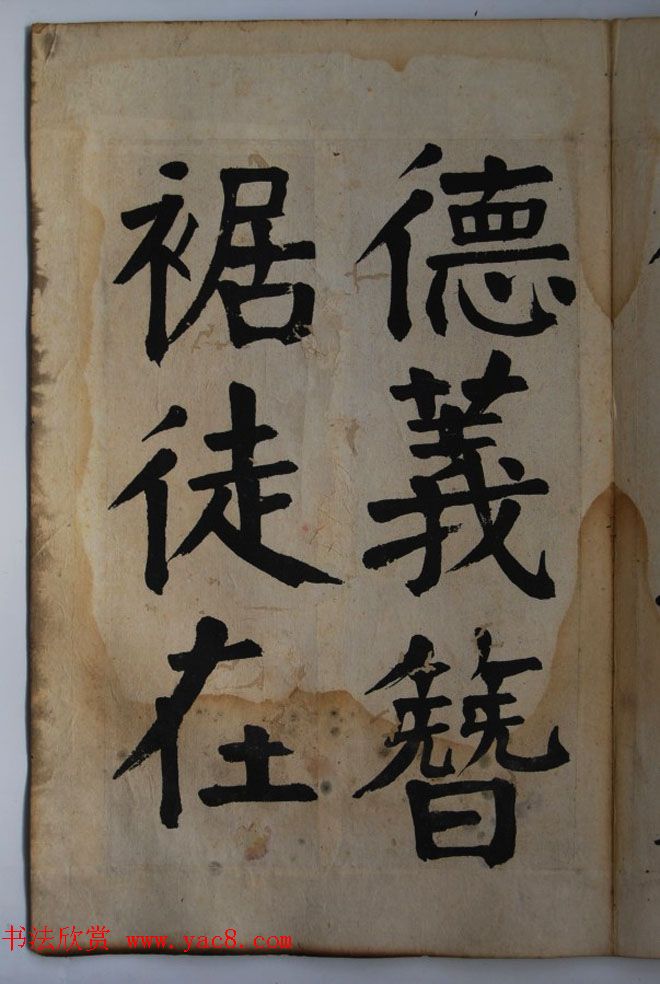 德義簪
裾徒在
书法欣赏 www.yac8.com